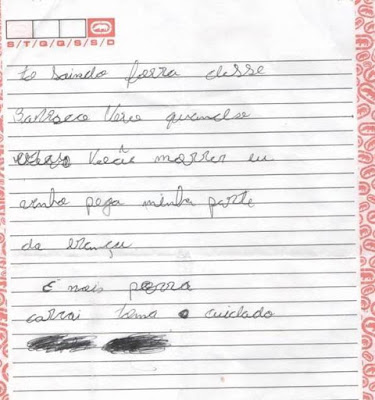 S/T/Q/Q/S/S/D
to saindo forra desse
Barraco Veio quando
Você morrer eu
venho pega minha parte
da erança
E nois porra
carai toma cuidado